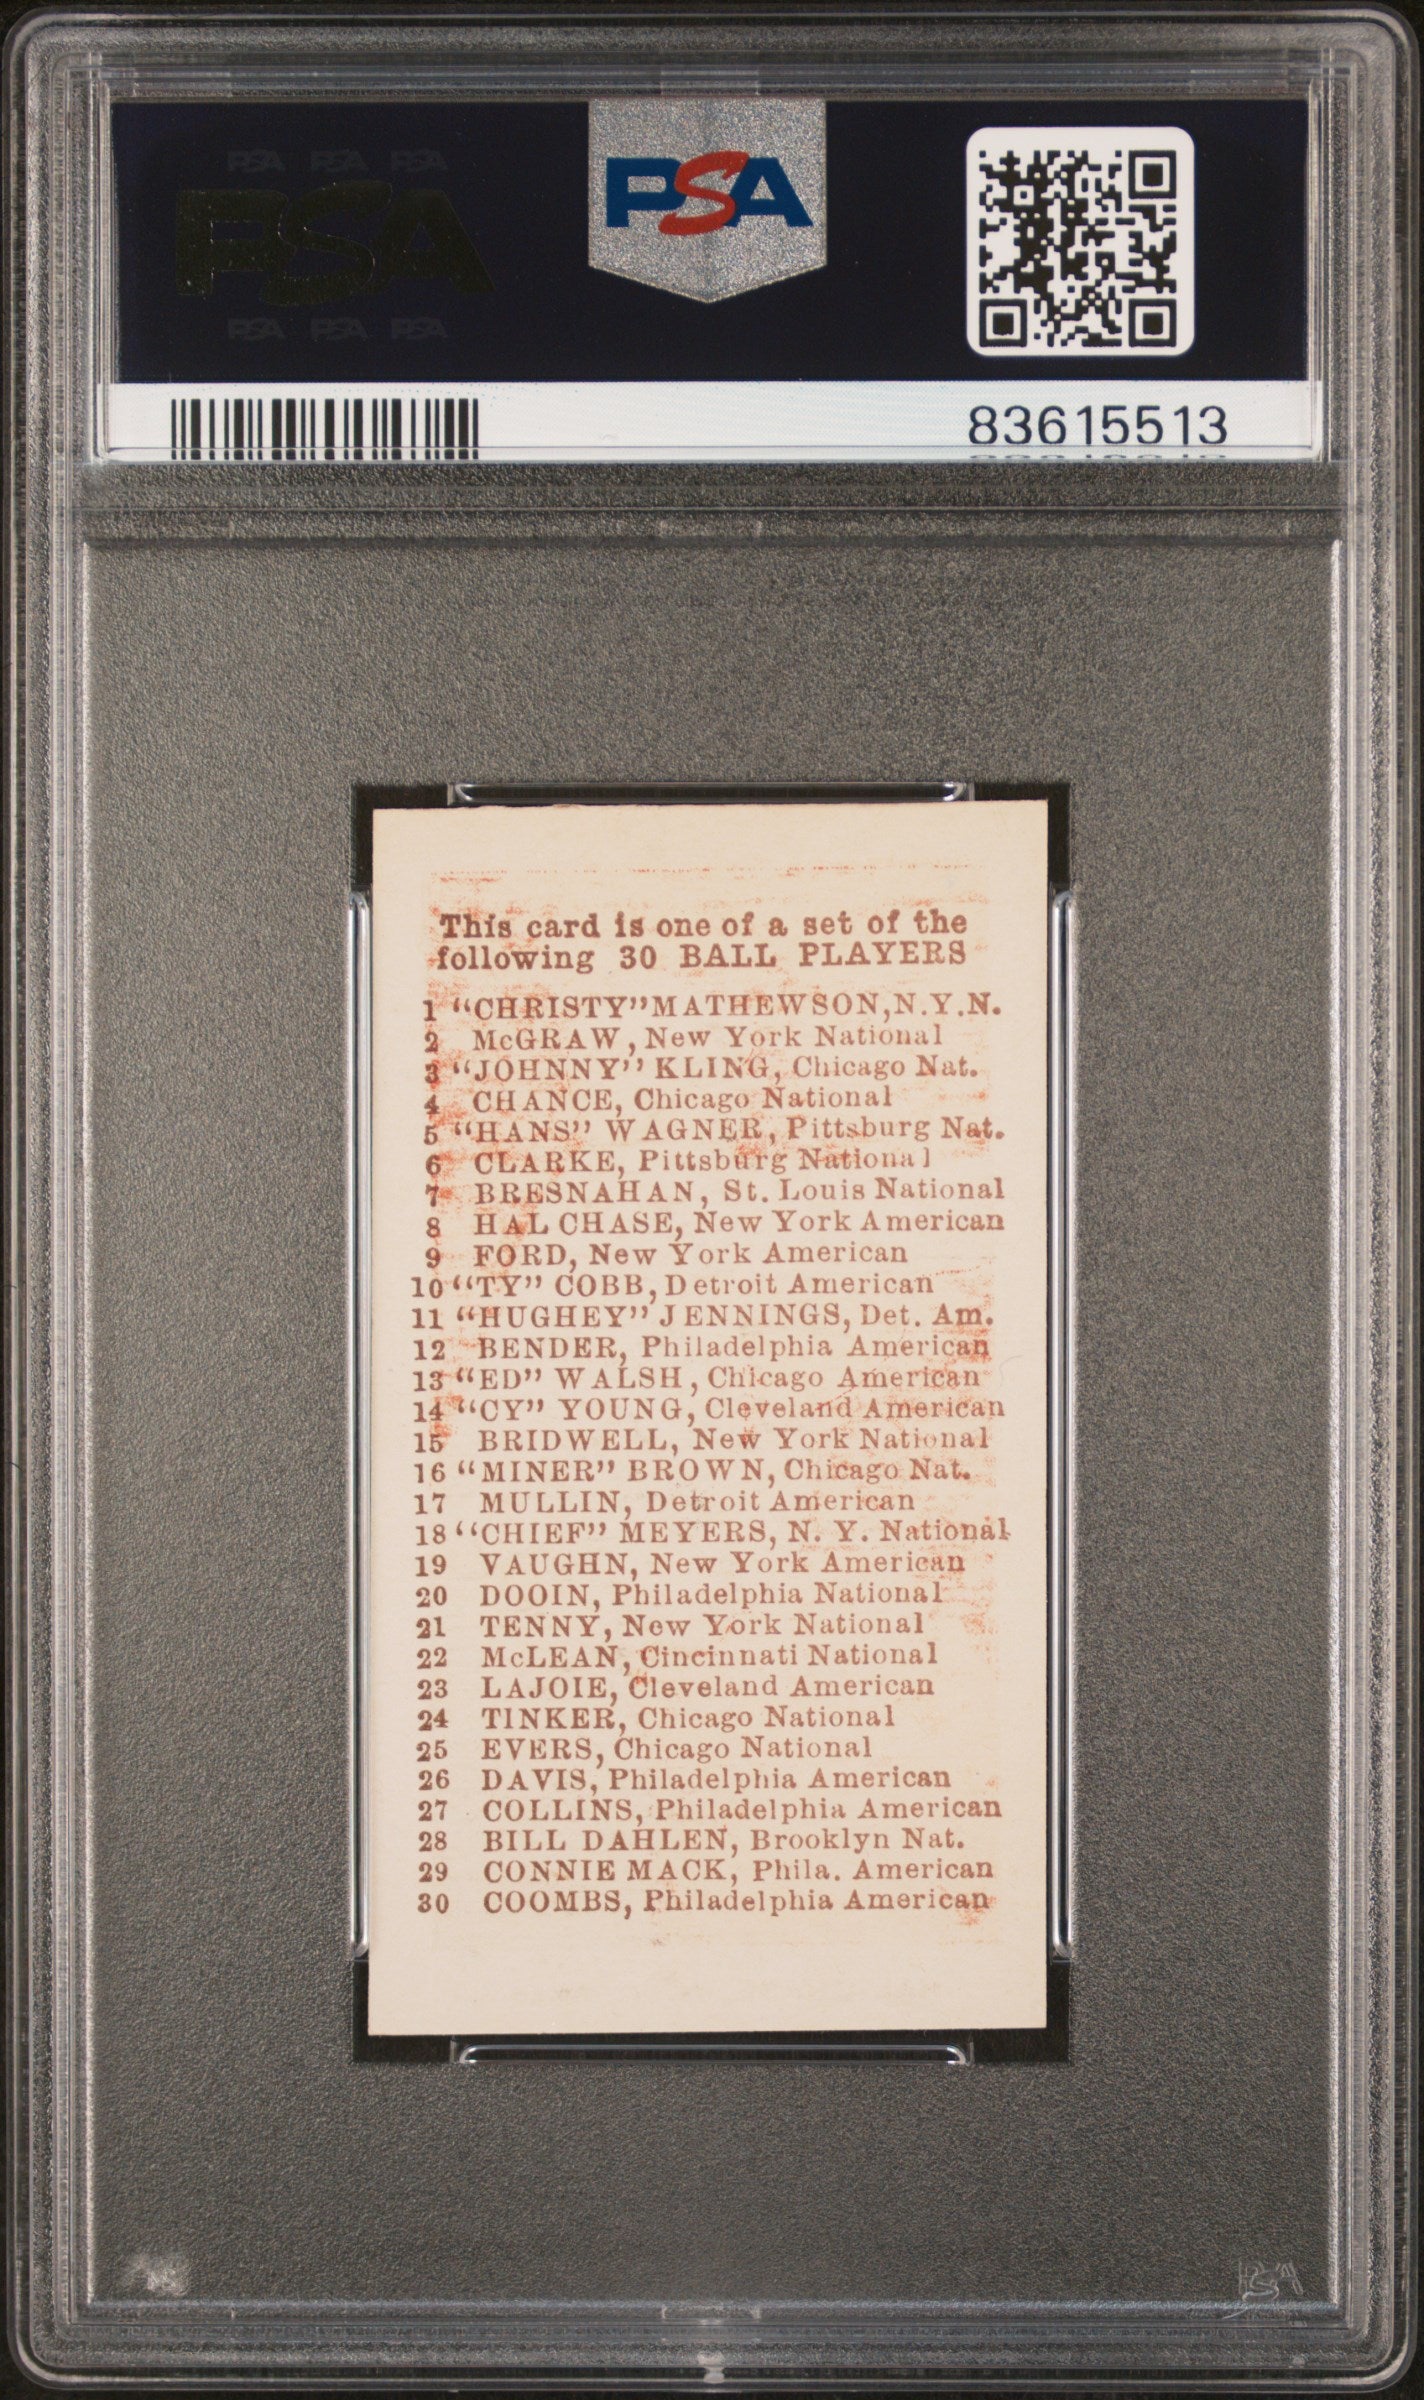 PSA PSA PSA
PSA
PSA PSA PSA
PSA
83615513
This card is one of a set of the
following 30 BALL PLAYERS
1 "CHRISTY" MATHEWSON, N.Y.N.
2 McGRAW, New York National
3 "JOHNNY" KLING, Chicago Nat.
4 CHANCE, Chicago National
5 "HANS" WAGNER, Pittsburg Nat.
6 CLARKE, Pittsburg National
7 BRESNAHAN, St. Louis National
8 HAL CHASE, New York American
9 FORD, New York American
10 "TY" COBB, Detroit American
11 "HUGHEY" JENNINGS, Det. Am.
12 BENDER, Philadelphia American
13 "ED" WALSH, Chicago American
14 "CY" YOUNG, Cleveland American
15 BRIDWELL, New York National
16 "MINER" BROWN, Chicago Nat.
17 MULLIN, Detroit American
18 "CHIEF" MEYERS, N. Y. National
19 VAUGHN, New York American
20 DOOIN, Philadelphia National
21 TENNY, New York National
22 McLEAN, Cincinnati National
23 LAJOIE, Cleveland American
24 TINKER, Chicago National
25 EVERS, Chicago National
26 DAVIS, Philadelphia American
27 COLLINS, Philadelphia American
28 BILL DAHLEN, Brooklyn Nat.
29 CONNIE MACK, Phila. American
30 COOMBS, Philadelphia American
PSA